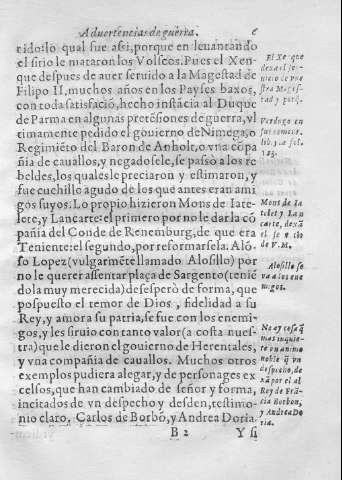 Aduertencias de guerra. 6
rido: lo qual fue assi, porque en leuantando
el sitio le mataron los Volscos. Pues el Xen-
que despues de auer seruido a la Magestad de
Filipo II. muchos años en los Payses baxos,
con toda satisfació, hecho instācia al Duque
de Parma en algunas pretēsiones de guerra, vl
timamente pedido el gouierno de Nimega, o
Regimiēto del Baron de Anholt, o vna cōpa
ñia de cauallos, y negadosele, se passò a los re
beldes, los quales le preciaron y estimaron, y
fue cuchillo agudo de los que antes eran ami
gos suyos. Lo propio hizieron Mons de Iate-
lete, y Lancarte: el primero por no le dar la cō
pañia del Conde de Renemburg, de que era
Teniente: el segundo, por reformarsela. Alō-
so Lopez (vulgarmēte llamado Alosillo) por
no le querer assentar plaça de Sargento (tenié
dola muy merecida) desesperò de forma, que
pospuesto el temor de Dios, fidelidad a su
Rey, y amor a su patria, se fue con los enemi-
gos, y les siruio con tanto valor (a costa nues-
tra) que le dieron el gouierno de Herentales,
y vna compañia de cauallos. Muchos otros
exemplos pudiera alegar, y de personages ex
celsos, que han cambiado de señor y forma,
incitados de vn despecho y desden, testimo-
nio claro, Carlos de Borbó, y Andrea Doria.
B 2 Y si
El Xēque
dexa el ser-
uicio de vue
stra Mages-
tad y porq̃.
Verdugo en
sus comēt.
lib. 1. a fol.
Mons de Ia
telet y Lan
carte, dexā
el seruicio
de V. M.
Alosillo se
va a los ene
migos.
No ay cosa q̃
mas inquie-
te vn animo
noble q̃ vn
despecho, de
xā por el al
Rey de Frā-
cia Borbon,
y Andrea Do
ria.